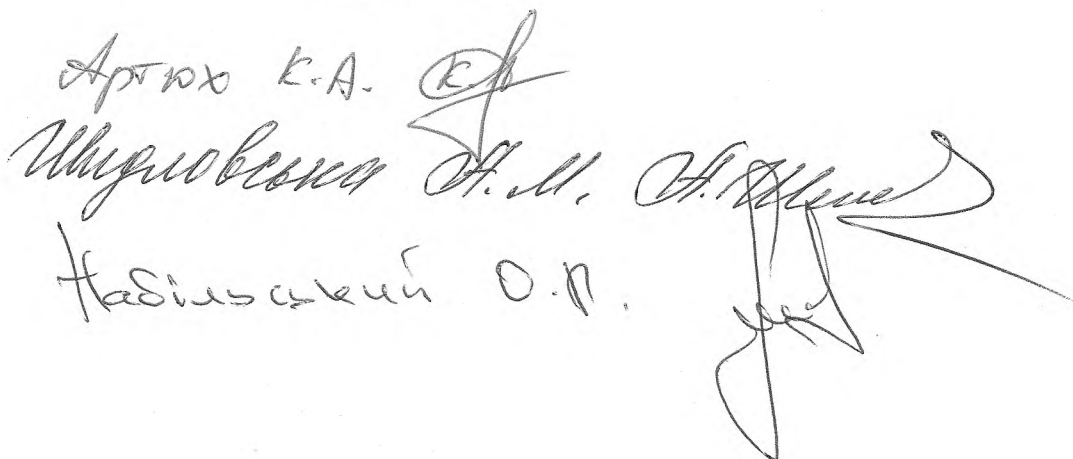 Артюх К.А.
Шидловська Н.М.
Набільський О.П.